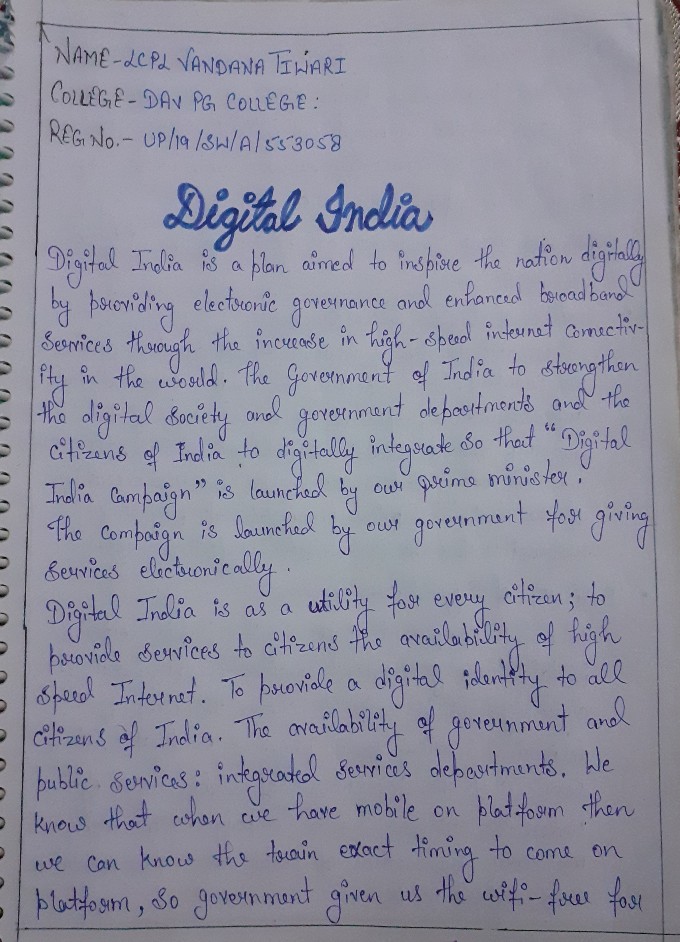 NAME-LCPL VANDANA TIWARI
COLLEGE- DAV PG COLLEGE:
REG No.- UP/19/SW/A/553058
Digital India
Digital India is a plan aimed to inspire the nation digitally
by providing electronic governance and enhanced broadband
Services through the increase in high-speed internet connectiv-
ity in the world. The Government of India to strengthen
the digital Society and government departments and the
citizens of India to digitally integrate so that "Digital
India Campaign" is launched by our prime minister.
The compaign is launched by our government for giving
services electronically.
Digital India is as a utility for every citizen; to
provide services to citizens the availability of high
speed Internet. To provide a digital identity to all
citizens of India. The availability of government and
public services: integrated services departments. We
know that when we have mobile on platform then
we can know the train exact timing to come on
platform, So government given us the wifi-free for